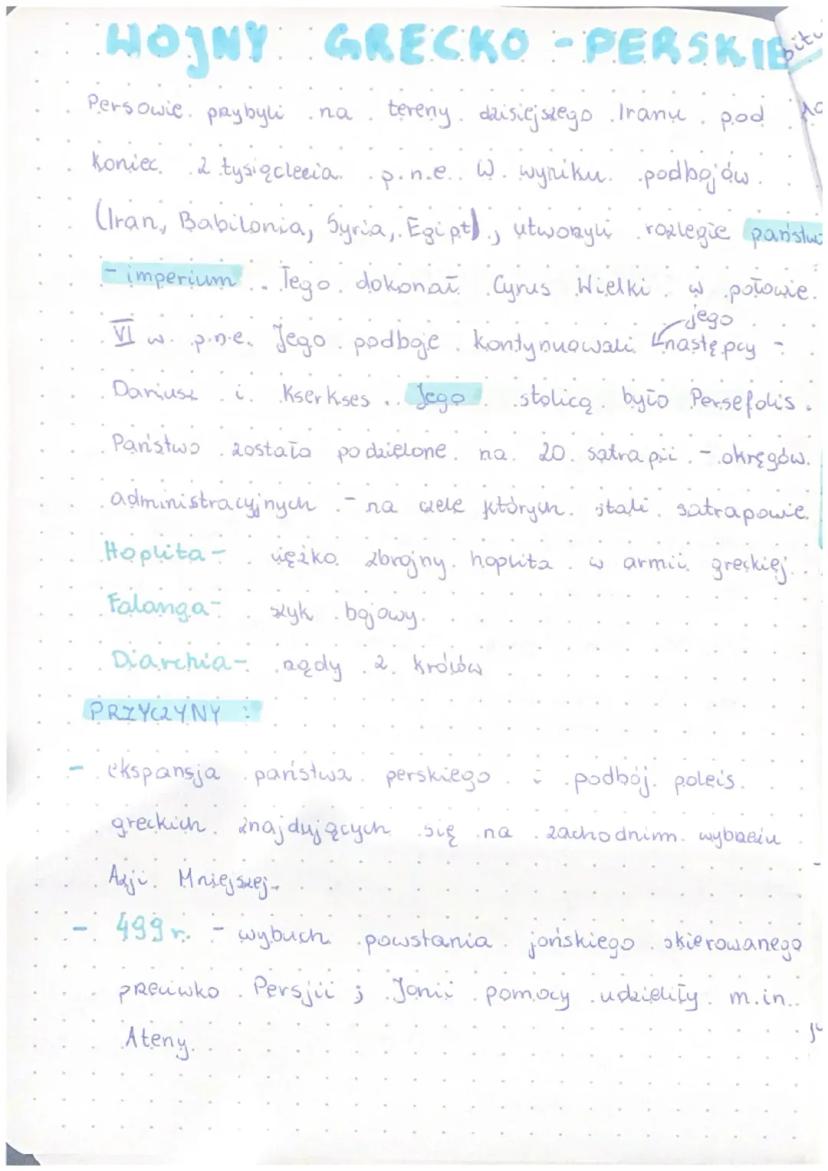 WOJNY GRECKO - PERSKIE
Persowie przybyli na tereny dzisiejszego Iranu pod
koniec 2 tysiąclecia p.n.e. W wyniku podbojów
(Iran, Babilonia, Syria, Egipt), utworzyli rozległe państwo
- imperium. Tego dokonał Cyrus Wielki w połowie
VI w. p.n.e. Jego podboje kontynuowali jego następcy -
Dariusz i Kserkses. Jego stolicą było Persefolis.
Państwo zostało podzielone na 20 satrapii - okręgów
administracyjnych - na czele których stali satrapowie.
Hoplita - ciężko zbrojny hoplita w armii greckiej
Falanga - szyk bojowy
Diarchia - rządy 2 królów
PRZYCZYNY :
- ekspansja państwa perskiego i podbój poleis
greckich znajdujących się na zachodnim wybrzeżu
Azji Mniejszej.
- 499 r. - wybuch powstania jońskiego skierowanego
przeciwko Persjii ; Jonii pomocy udzieliły m.in.
Ateny.